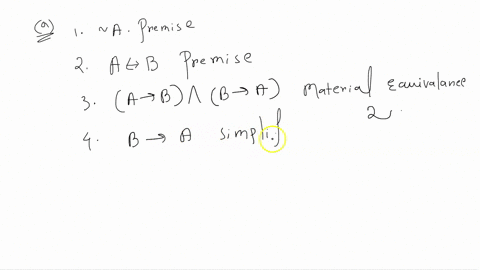 (a) 1. ~A. Premise
2. A ↔ B Premise
3. (A → B) ∧ (B → A) Material Equivalance 2.
4. B → A simplif